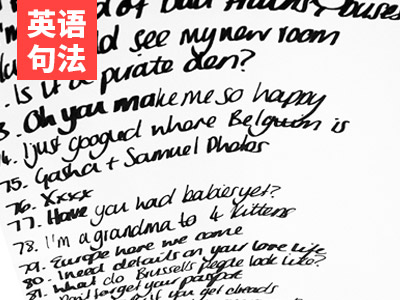 英语
句法
and see my new room
Is it a pirate den?
3. Oh you make me so happy
74. I just googled where Belgium is
75. Gasha + Samuel Photos
76. Xxxx
77. Have you had babies yet?
78. I'm a grandma to 4 kittens
79. Europe here we come
80. I need details on your love life
81. What do Brussels people look like?
Don't forget your passport
if you get dreads